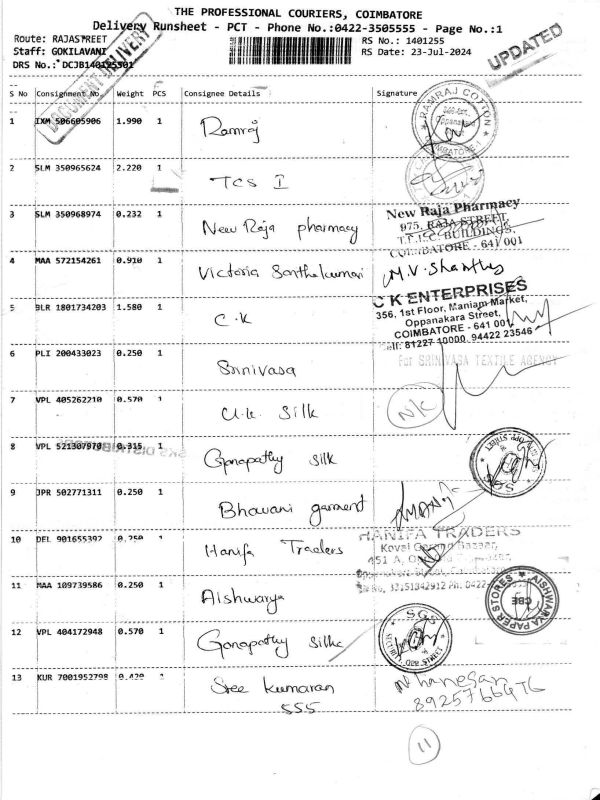 THE PROFESSIONAL COURIERS, COIMBATORE
Delivery Runsheet - PCT - Phone No.:0422-3505555 - Page No.:1
Route: RAJASTREET
RS No.: 1401255
Staff: GOKILAVANI
RS Date: 23-Jul-2024
DRS No.: DCJB140125501
DOCUMENT DELIVERY
UPDATED
S No Consignment No. Weight PCS Consignee Details Signature
1 IXM 506605906 1.990 1 Ramraj
RAMRAJ COTTON
Oppanakara
COIMBATORE-1
2 SLM 350965624 2.220 1 TCS I
3 SLM 350968974 0.232 1 New Raja pharmacy
New Raja Pharmacy
975, RAJA STREET,
T.E.L.C. BUILDINGS,
COIMBATORE - 641 001
4 MAA 572154261 0.910 1 Victoria Santhakumari
M.V. Shanthy
5 BLR 1801734203 1.580 1 C.K
C K ENTERPRISES
356, 1st Floor, Maniam Market,
Oppanakara Street,
COIMBATORE - 641 001
Cell: 81227 10000, 94422 23546
6 PLI 200433023 0.250 1 Srinivasa
For SRINIVASA TEXTILE AGENCY
7 VPL 405262210 0.570 1 U.K. Silk
NK
8 VPL 521307970 0.315 1 Ganapathy Silk
SKS DISTRIBUTORS
SGS
9 JPR 502771311 0.250 1 Bhavani garment
10 DEL 901655392 0.250 1 Hanifa Traders
HANIFA TRADERS
Kovai Bazaar,
451 A,
11 MAA 109739586 0.250 1 Aishwarya
AISHWARYA PAPER STORES
CBE
12 VPL 404172948 0.570 1 Ganapathy Silks
SGS
13 KUR 7001952798 0.420 1 Sree Kumaran
555
11